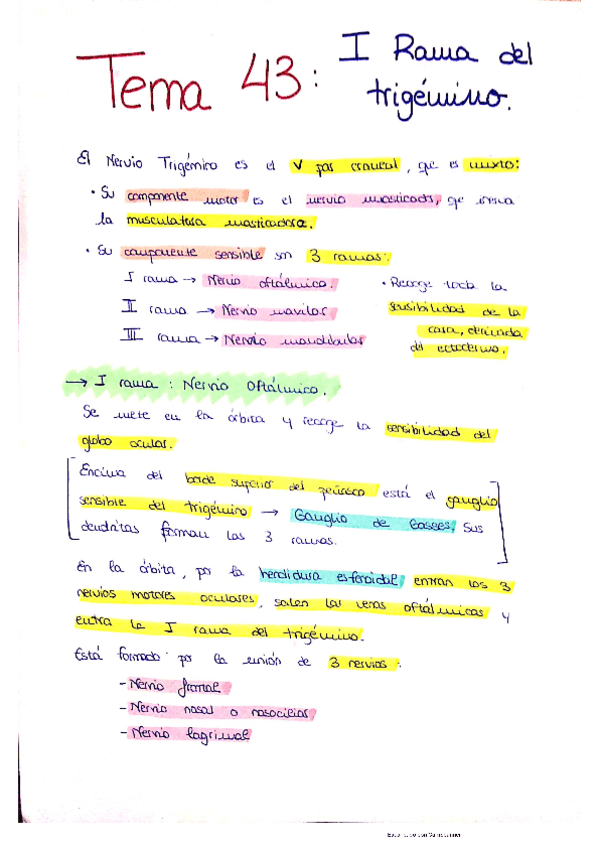 Tema 43: I Rama del
trigémino.
El Nervio Trigémino es el V par craneal, que es mixto:
• Su componente motor es el nervio masticador, que inerva
la musculatura masticadora.
• Su componente sensible son 3 ramas:
I rama → Nervio oftálmico.
II rama → Nervio maxilar
III rama → Nervio mandibular
• Recoge toda la
sensibilidad de la
cara, derivada
del ectodermo.
→ I rama : Nervio Oftálmico.
Se mete en la órbita y recoge la sensibilidad del
globo ocular.
Encima del borde superior del peñasco está el ganglio
sensible del trigémino → Ganglio de Gasser. Sus
dendritas forman las 3 ramas.
En la órbita, por la hendidura esfenoidal entran los 3
nervios motores oculares, salen las venas oftálmicas y
entra la I rama del trigémino.
Está formado por la unión de 3 nervios:
- Nervio frontal
- Nervio nasal o nasociliar
- Nervio lagrimal
Escaneado con CamScanner